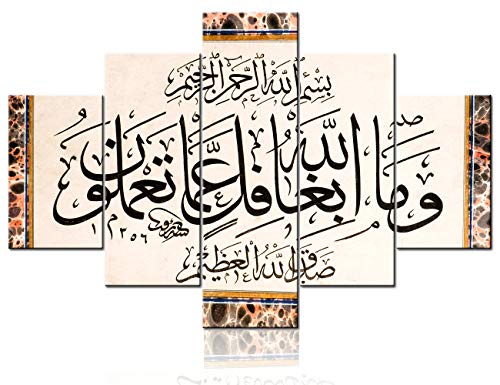 بسم الله الرحمن الرحيم
وما الله بغافل عما تعملون
١٢٥٦
صدق الله العظيم